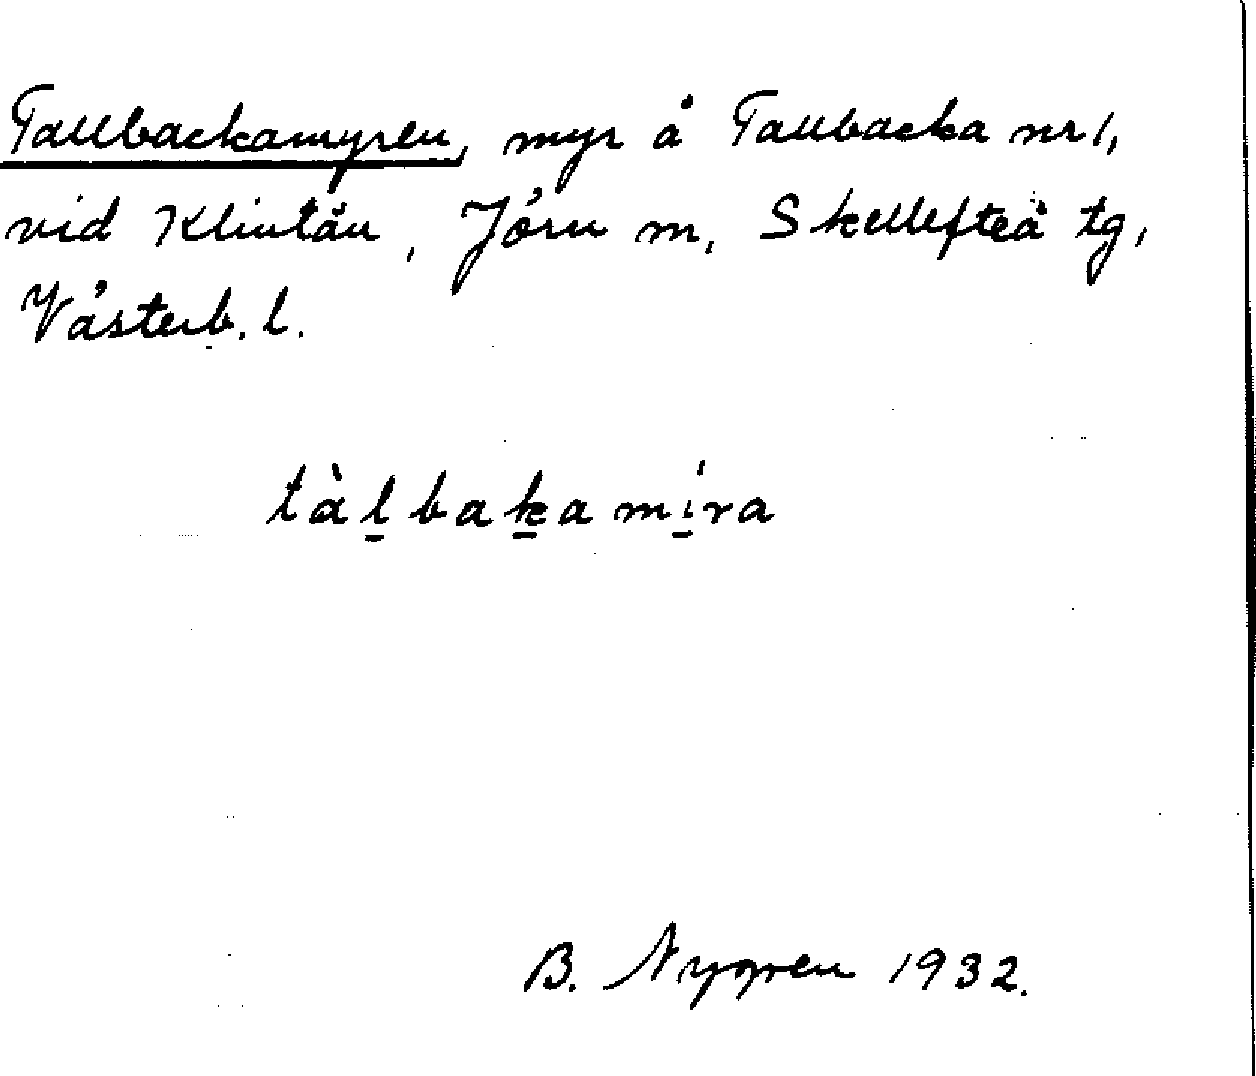 Tallbackamyren, myr å Tallbacka nr 1,
vid Klintån, Jörn sn, Skellefteå tg,
Västerb. l.
tàl̠bak̠amí̠ra
B. Nygren 1932.